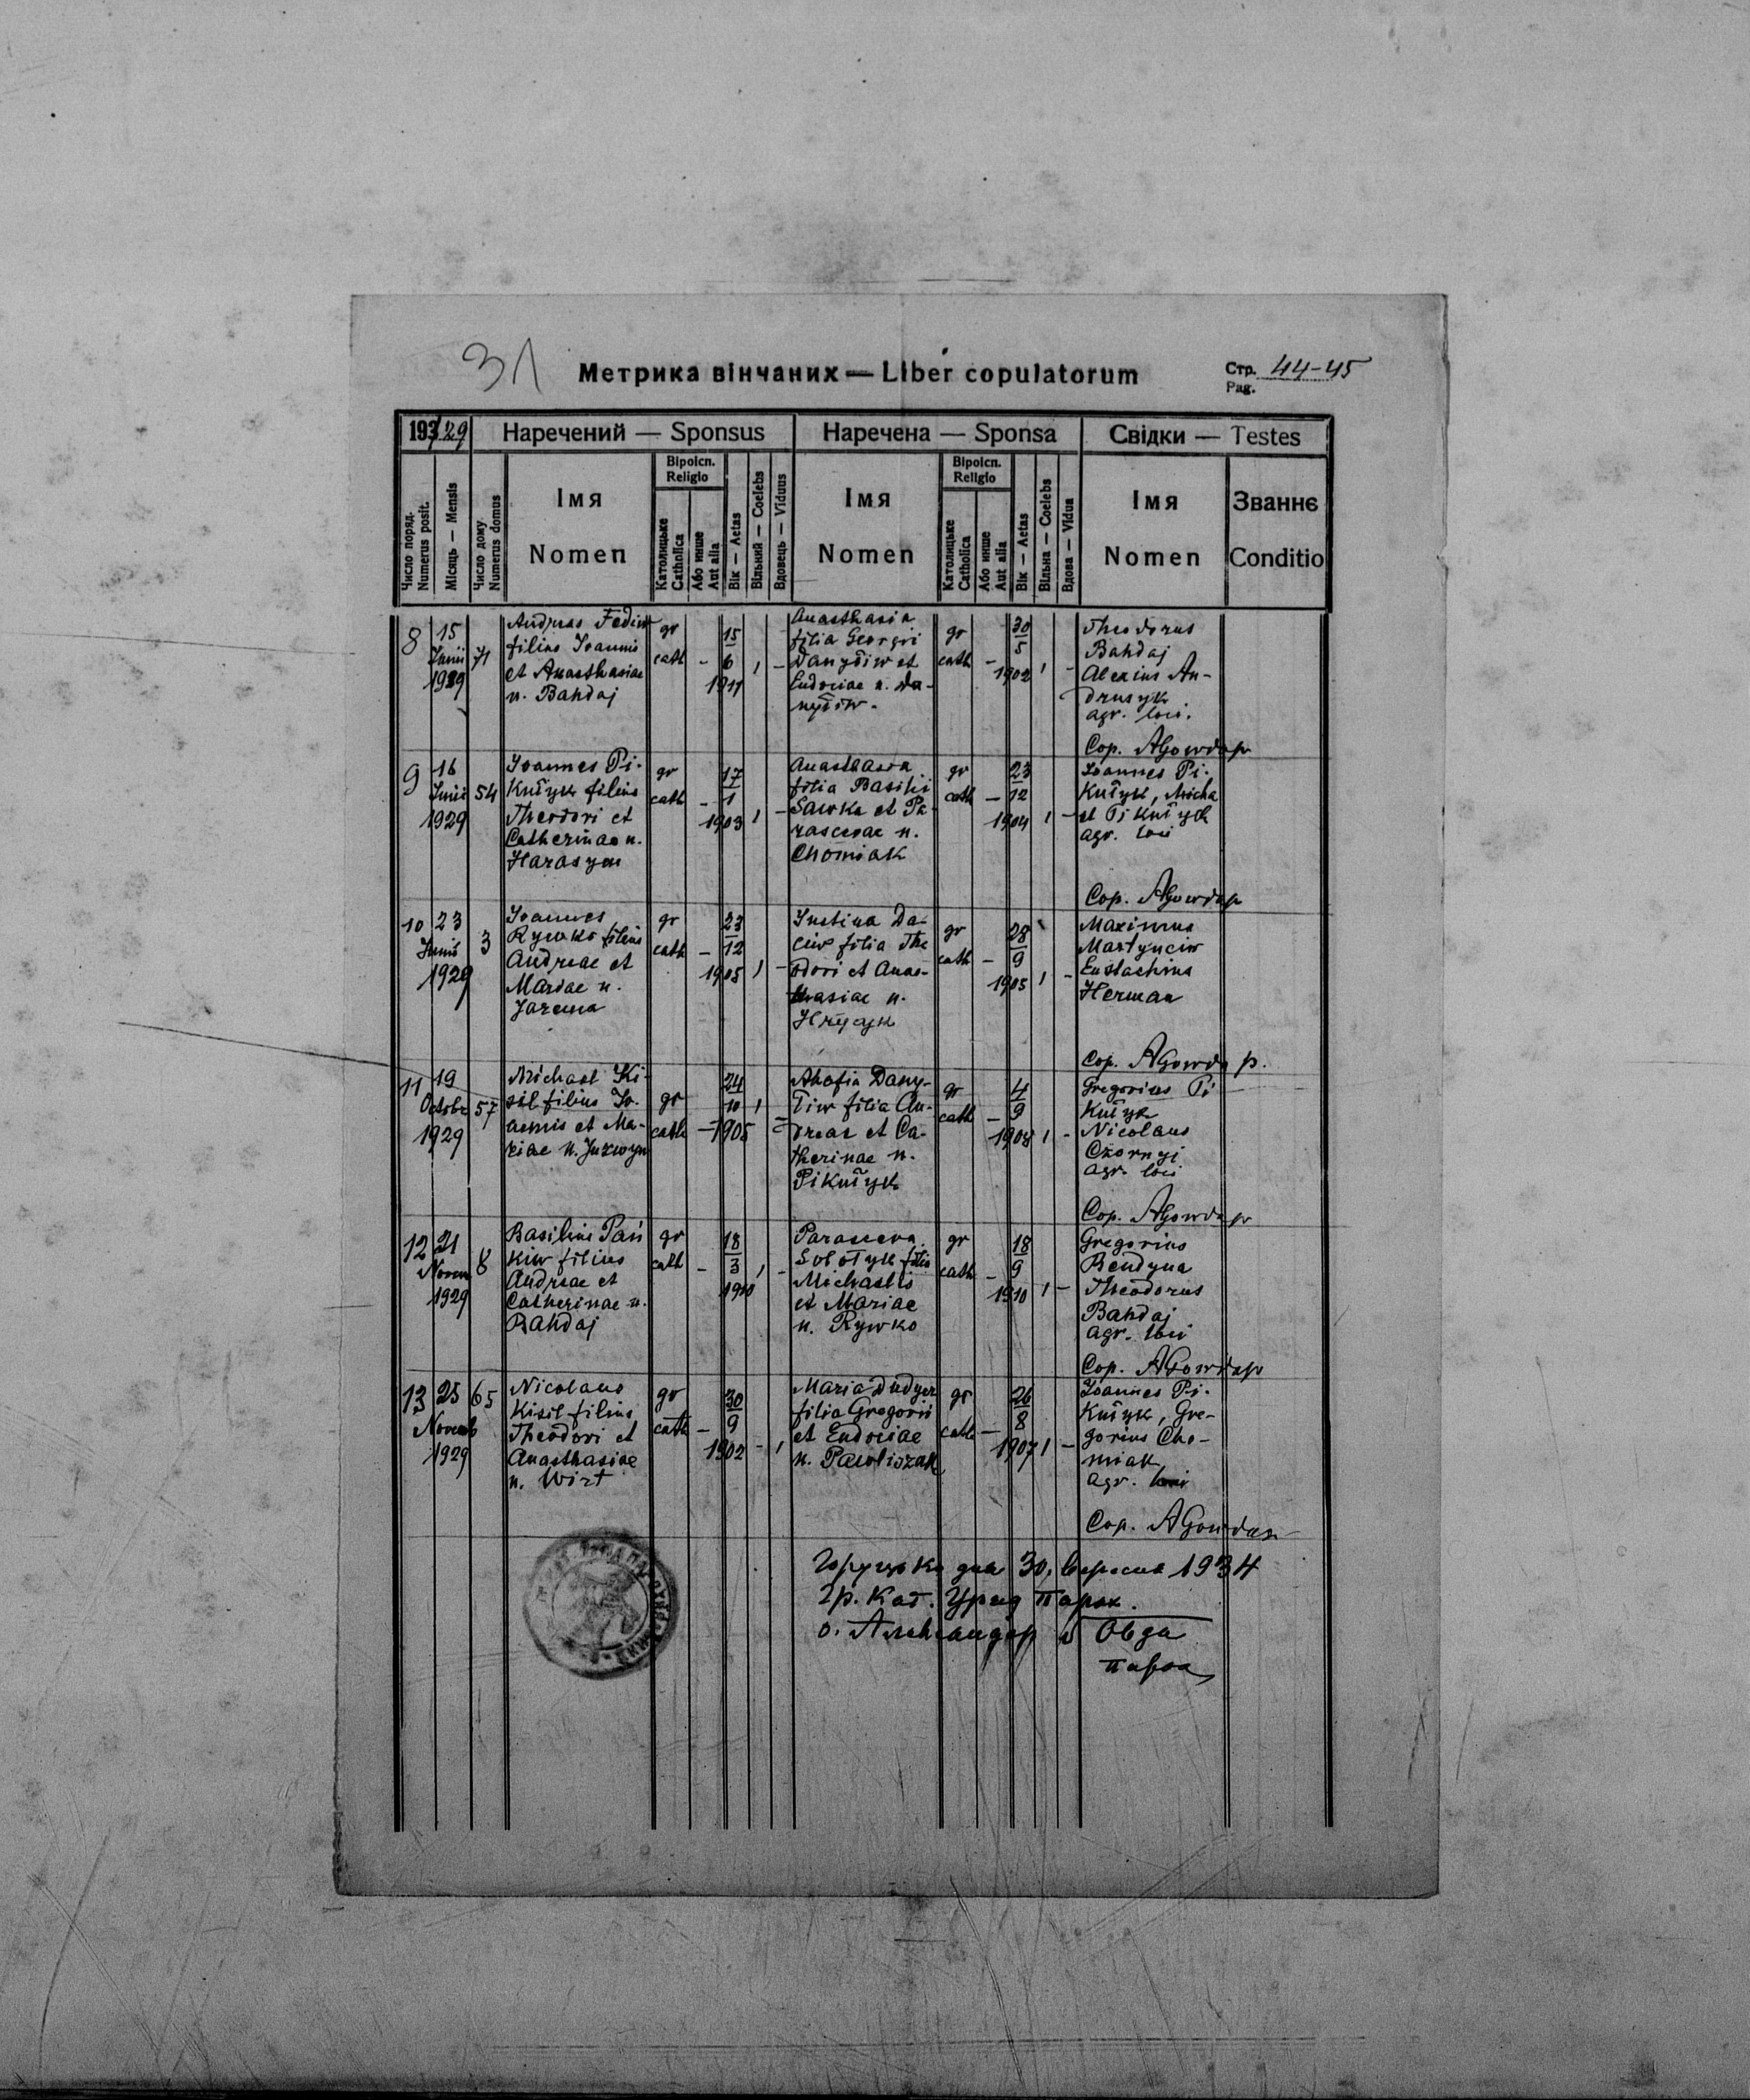 31
Метрика вінчаних — Liber copulatorum
Стр. 44-45
Pag.
1929
Наречений — Sponsus
Наречена — Sponsa
Свідки — Testes
Число поряд.
Numerus posit.
Місяць — Mensis
Число дому
Numerus domus
Імя
Nomen
Віроісп.
Religio
Католицьке
Catholica
Або инше
Aut alia
Вік — Aetas
Вільний — Coelebs
Вдовець — Viduus
Імя
Nomen
Віроісп.
Religio
Католицьке
Catholica
Або инше
Aut alia
Вік — Aetas
Вільна — Coelebs
Вдова — Vidua
Імя
Nomen
Званнє
Conditio
8
15
Junii
1929
71
Andreas Fediw
filius Joannis
et Anasthasiae
n. Bahdaj
gr
cath
-
15
6
1911
1
-
Anasthasia
filia Georgii
Danyliw et
Eudociae n. Da-
nyliw.
gr
cath
-
30
5
1902
1
-
Theodorus
Bahdaj
Alexius An-
drusyk
agr. loci.
Cop. AGowda p
9
16
Junii
1929
54
Joannes Pi-
kulyk filius
Theodori et
Catherinae n.
Harasym
gr
cath
-
17
1
1903
1
-
Anasthasia
filia Basilii
Sawka et Pa-
rascevae n.
Chomiak
gr
cath
-
23
12
1904
1
-
Joannes Pi-
kulyk, Micha
el Pikulyk
agr. loci
Cop. AGowda p
10
23
Junii
1929
3
Joannes
Rywko filius
Andreae et
Mariae n.
Jarema
gr
cath
-
23
12
1905
1
-
Justina Da-
ciw filia The
odori et Anas-
thasiae n.
Hrycyk
gr
cath
-
28
9
1905
1
-
Maximus
Martynciw
Eustachius
Herman
Cop. AGowda p.
11
19
Octobr
1929
57
Michael Ki-
sil filius Jo-
annis et Ma-
riae n. Juzwyn
gr
cath
-
24
10
1905
1
-
Ahafia Dany-
liw filia An-
dreae et Ca-
therinae n.
Pikulyk
gr
cath
-
4
9
1908
1
-
Gregorius Pi-
kulyk
Nicolaus
Czornyj
agr. loci
Cop. AGowda p
12
21
Novem
1929
8
Basilius Pań
kiw filius
Andreae et
Catherinae n.
Bahdaj
gr
cath
-
18
3
1910
1
-
Parasceva
Sololyk filia
Michaelis
et Mariae
n. Rywko
gr
cath
-
18
9
1910
1
-
Gregorius
Bendyna
Theodorus
Bahdaj
agr. loci
Cop. AGowda p
13
25
Novemb
1929
65
Nicolaus
Kisil filius
Theodori et
Anasthasiae
n. Wirt
gr
cath
-
30
9
1902
-
1
Maria Dudycz
filia Gregorii
et Eudociae
n. Pawliszak
gr
cath
-
26
8
1907
1
-
Joannes Pi-
kulyk, Gre-
gorius Cho-
miak
agr. loci
Cop. AGowda p
дня 30. вересня 1934
гр. кат. Уряд парох.
о. Александер
парох